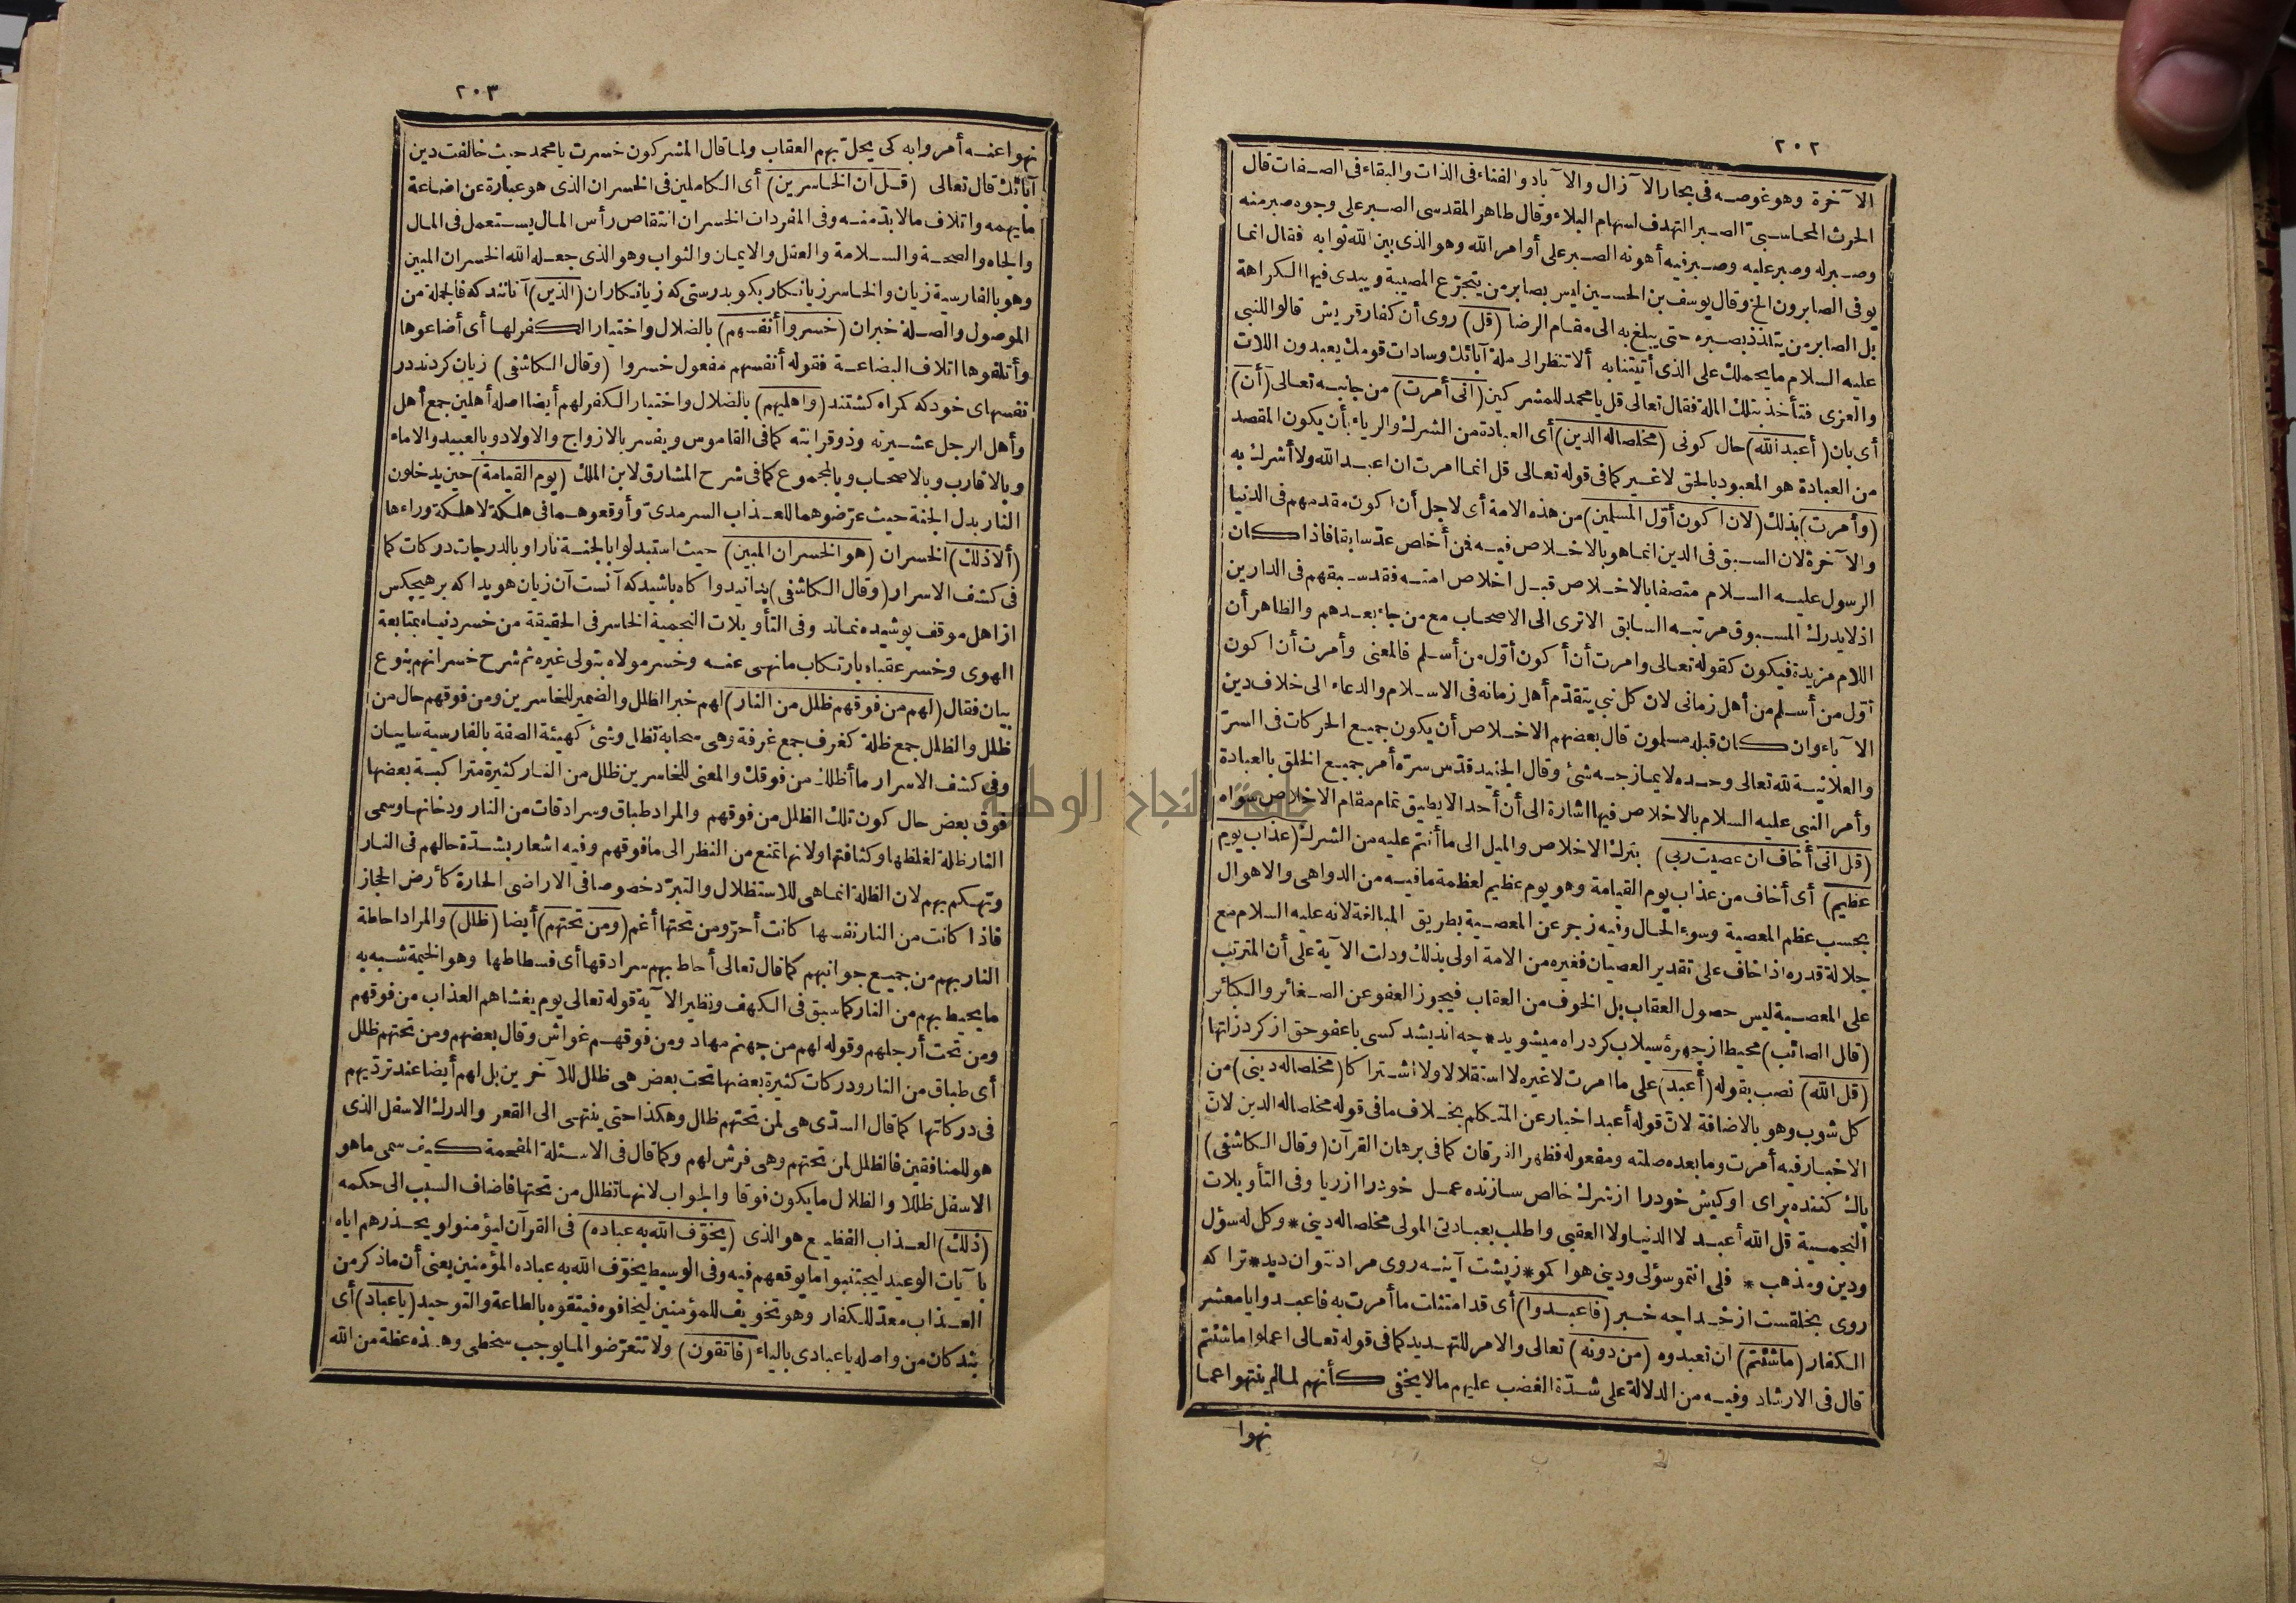 ٢٠٢
الآخرة وهو غوصه فى بحار الآزال والآباد والفناء فى الذات والبقاء فى الصفات قال
الحرث المحاسبىّ الصبر التهدف لسهام البلاء وقال طاهر المقدسى الصبر على وجوه صبر منه
وصبر له وصبر عليه وصبر فيه أهونه الصبر على أوامر الله وهو الذى بين الله ثوابه فقال انما
يوفى الصابرون الخ وقال يوسف بن الحسين ليس بصابر من يتجرّع المصيبة ويبدى فيها الكراهة
بل الصابر من يتلذذ بصبره حتى يبلغ به الى مقام الرضا (قل) روى أن كفار قريش قالوا للنبى
عليه السلام ما يحملك على الذى أتيتنا به ألا تنظر الى ملة آبائك وسادات قومك يعبدون اللات
والعزى فتأخذ بتلك الملة فقال تعالى قل يا محمد للمشركين (انى أمرت) من جانبه تعالى (أن)
أى بان (أعبد الله) حال كونى (مخلصا له الدين) أى العبادة من الشرك والرياء بأن يكون المقصد
من العبادة هو المعبود بالحق لا غير كما فى قوله تعالى قل انما امرت ان اعبد الله ولا أشرك به
(وأمرت) بذلك (لان اكون أوّل المسلمين) من هذه الامة أى لاجل أن اكون مقدمهم فى الدنيا
والآخرة لان السبق فى الدين انما هو بالاخلاص فيه فمن أخلص عدّ سابقا فاذا كان
الرسول عليه السلام متصفا بالاخلاص قبل اخلاص امته فقد سبقهم فى الدارين
اذ لا يدرك المسبوق مرتبه السابق الا ترى الى الاصحاب مع من جاء بعدهم والظاهر أن
اللام مزيدة فيكون كقوله تعالى وامرت أن أكون أوّل من أسلم فالمعنى وأمرت أن اكون
أوّل من أسلم من أهل زمانى لان كل نبى يتقدّم أهل زمانه فى الاسلام والدعاء الى خلاف دين
الآباء وان كان قبله مسلمون قال بعضهم الاخلاص أن يكون جميع الحركات فى السرّ
والعلانية لله تعالى وحده لا يمازجه شئ وقال الجنيد قدّس سرّه أمر جميع الخلق بالعبادة
وأمر النبى عليه السلام بالاخلاص فيها اشارة الى أن أحدا لا يطيق تمام مقام الاخلاص سواه
(قل انى أخاف ان عصيت ربى) بترك الاخلاص والميل الى ما أنتم عليه من الشرك (عذاب يوم
عظيم) أى أخاف من عذاب يوم القيامة وهو يوم عظيم لعظمة ما فيه من الدواهى والاهوال
بحسب عظم المعصية وسوء الحال وفيه زجر عن المعصية بطريق المبالغة لانه عليه السلام مع
جلالة قدره اذا خاف على تقدير العصيان فغيره من الامة اولى بذلك ودلت الآية على أن المترتب
على المعصية ليس حصول العقاب بل الخوف من العقاب فيجوز العفو عن الصغائر والكبائر
(قال الصائب) محيط از چهرهٔ سيلاب كرد راه ميشويد * چه انديشد كسى با عفو حق از كرد زلتها
(قل الله) نصب بقوله (أعبد) على ما امرت لا غيره لا استقلالا ولا اشتراكا (مخلصا له دينى) من
كل شوب وهو بالاضافة لانّ قوله أعبد اخبار عن المتكلم بخلاف ما فى قوله مخلصا له الدين لانّ
الاخبار فيه أمرت وما بعده صلته ومفعوله فظهر الفرقان كما فى برهان القرآن (وقال الكاشفى)
پاك كننده براى او كيش خودرا از شرك خالص سازنده عمل خودرا از ريا وفى التأويلات
النجمية قل الله أعبد لا الدنيا ولا العقبى واطلب بعبادتى المولى مخلصا له دينى * وكل له سؤل
ودين ومذهب * فلى انتمو سؤلى ودينى هواكمو * ز پشت آينه روى مراد نتوان ديد * ترا كه
روى بخلقست از خدا چه خبر (فاعبدوا) أى قد امتثلت ما أمرت به فاعبدوا يا معشر
الكفار (ما شئتم) ان تعبدوه (من دونه) تعالى والامر للتهديد كما فى قوله تعالى اعملوا ما شئتم
قال فى الارشاد وفيه من الدلالة على شدّة الغضب عليهم ما لا يخفى كأنهم لما لم ينتهوا عما
نهوا
٢٠٣
نهوا عنه أمروا به كى يحلّ بهم العقاب ولما قال المشركون خسرت يا محمد حيث خالفت دين
آبائك قال تعالى (قل ان الخاسرين) أى الكاملين فى الخسران الذى هو عبارة عن اضاعة
ما يهمه واتلاف ما لا بدّ منه وفى المفردات الخسران انتقاص رأس المال يستعمل فى المال
والجاه والصحة والسلامة والعقل والايمان والثواب وهو الذى جعله الله الخسران المبين
وهو بالفارسية زيان والخاسر زيانكار بكو بدرستى كه زيانكاران (الذين) آنانند كه فالجملة من
الموصول والصلة خبر ان (خسروا أنفسهم) بالضلال واختيار الكفر لها أى أضاعوها
وأتلفوها اتلاف البضاعة فقوله أنفسهم مفعول خسروا (وقال الكاشفى) زيان كردند در
نفسهاى خود كه كمراه كشتند (واهليهم) بالضلال واختيار الكفر لهم أيضا اصله أهلين جمع أهل
وأهل الرجل عشيرته وذو قرابته كما فى القاموس ويفسر بالازواج والاولاد وبالعبيد والاماء
وبالاقارب وبالاصحاب وبالمجموع كما فى شرح المشارق لابن الملك (يوم القيامة) حين يدخلون
النار بدل الجنة حيث عرّضوهما للعذاب السرمدىّ وأوقعوهما فى هلكة لا هلكة وراءها
(ألا ذلك) الخسران (هو الخسران المبين) حيث استبدلوا بالجنة نارا وبالدرجات دركات كما
فى كشف الاسرار (وقال الكاشفى) بدانيد وا كاه باشيد كه آنست آن زيان هويدا كه برهيچكس
از اهل موقف پوشيده نماند وفى التأويلات النجمية الخاسر فى الحقيقة من خسر دنياه بمتابعة
الهوى وخسر عقباه بارتكاب ما نهى عنه وخسر مولاه بتولى غيره ثم شرح خسرانهم بنوع
بيان فقال (لهم من فوقهم ظلل من النار) لهم خبر الظلل والضمير للخاسرين ومن فوقهم حال من
ظلل والظلل جمع ظلة كغرف جمع غرفة وهى سحابة تظل وشئ كهيئة الصفة بالفارسية سايبان
وفى كشف الاسرار ما أظلك من فوقك والمعنى للخاسرين ظلل من النار كثيرة متراكبة بعضها
فوق بعض حال كون تلك الظلل من فوقهم والمراد طباق وسرادقات من النار ودخانها وسمى
النار ظلة لغلظها وكثافتها ولانها تمنع من النظر الى ما فوقهم وفيه اشعار بشدّة حالهم فى النار
وتهكم بهم لان الظلة انما هى للاستظلال والتبرّد خصوصا فى الاراضى الحارة كأرض الحجاز
فاذا كانت من النار نفسها كانت أحرّ ومن تحتها أغم (ومن تحتهم) أيضا (ظلل) والمراد احاطة
النار بهم من جميع جوانبهم كما قال تعالى أحاط بهم سرادقها أى فسطاطها وهو الخيمة شبه به
ما يحيط بهم من النار كما سبق فى الكهف ونظير الآية قوله تعالى يوم يغشاهم العذاب من فوقهم
ومن تحت أرجلهم وقوله لهم من جهنم مهاد ومن فوقهم غواش وقال بعضهم ومن تحتهم ظلل
أى طباق من النار ودركات كثيرة بعضها تحت بعض هى ظلل للآخرين بل لهم أيضا عند تردّيهم
فى دركاتها كما قال السدّى هى لمن تحتهم ظلل وهكذا حتى ينتهى الى القعر والدرك الاسفل الذى
هو للمنافقين فالظلل لمن تحتهم وهى فرش لهم وكما قال فى الاسئلة المفحمة كيف سمى ما هو
الاسفل ظللا والظلال ما يكون فوقا والجواب لانها تظلل من تحتها فاضاف السبب الى حكمه
(ذلك) العذاب الفظيع هو الذى (يخوّف الله به عباده) فى القرآن ليؤمنوا ويحذرهم اياه
بآيات الوعيد ليجتنبوا ما يوقعهم فيه وفى الوسيط يخوّف الله به عباده المؤمنين يعنى أن ما ذكر من
العذاب معدّ للكفار وهو تخويف للمؤمنين ليخافوه فيتقوه بالطاعة والتوحيد (يا عباد) أى
بندكان من واصله يا عبادى بالياء (فاتقون) ولا تتعرّضوا لما يوجب سخطى وهذه عظة من الله
جامعة النجاح الوطنية